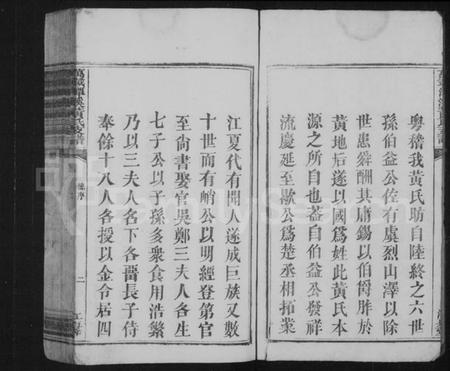 粵稽我黃氏昉自陸終之六世
孫伯益公佐有虞烈山澤以除
世患舜酬其庸錫以伯爵胙於
黃地后遂以國爲姓此黃氏本
源之所自也蓋自伯益公發祥
流慶延至歇公爲楚丞相拓業
江夏代有聞人遂成巨族又數
十世而有峭公以明經登第官
至尚書娶官吳鄭三夫人各生
七子公以子孫多衆食用浩繁
乃以三夫人名下各畱長子侍
奉餘十八人各授以金令居四
萬載潭溪黃氏支譜
序
二